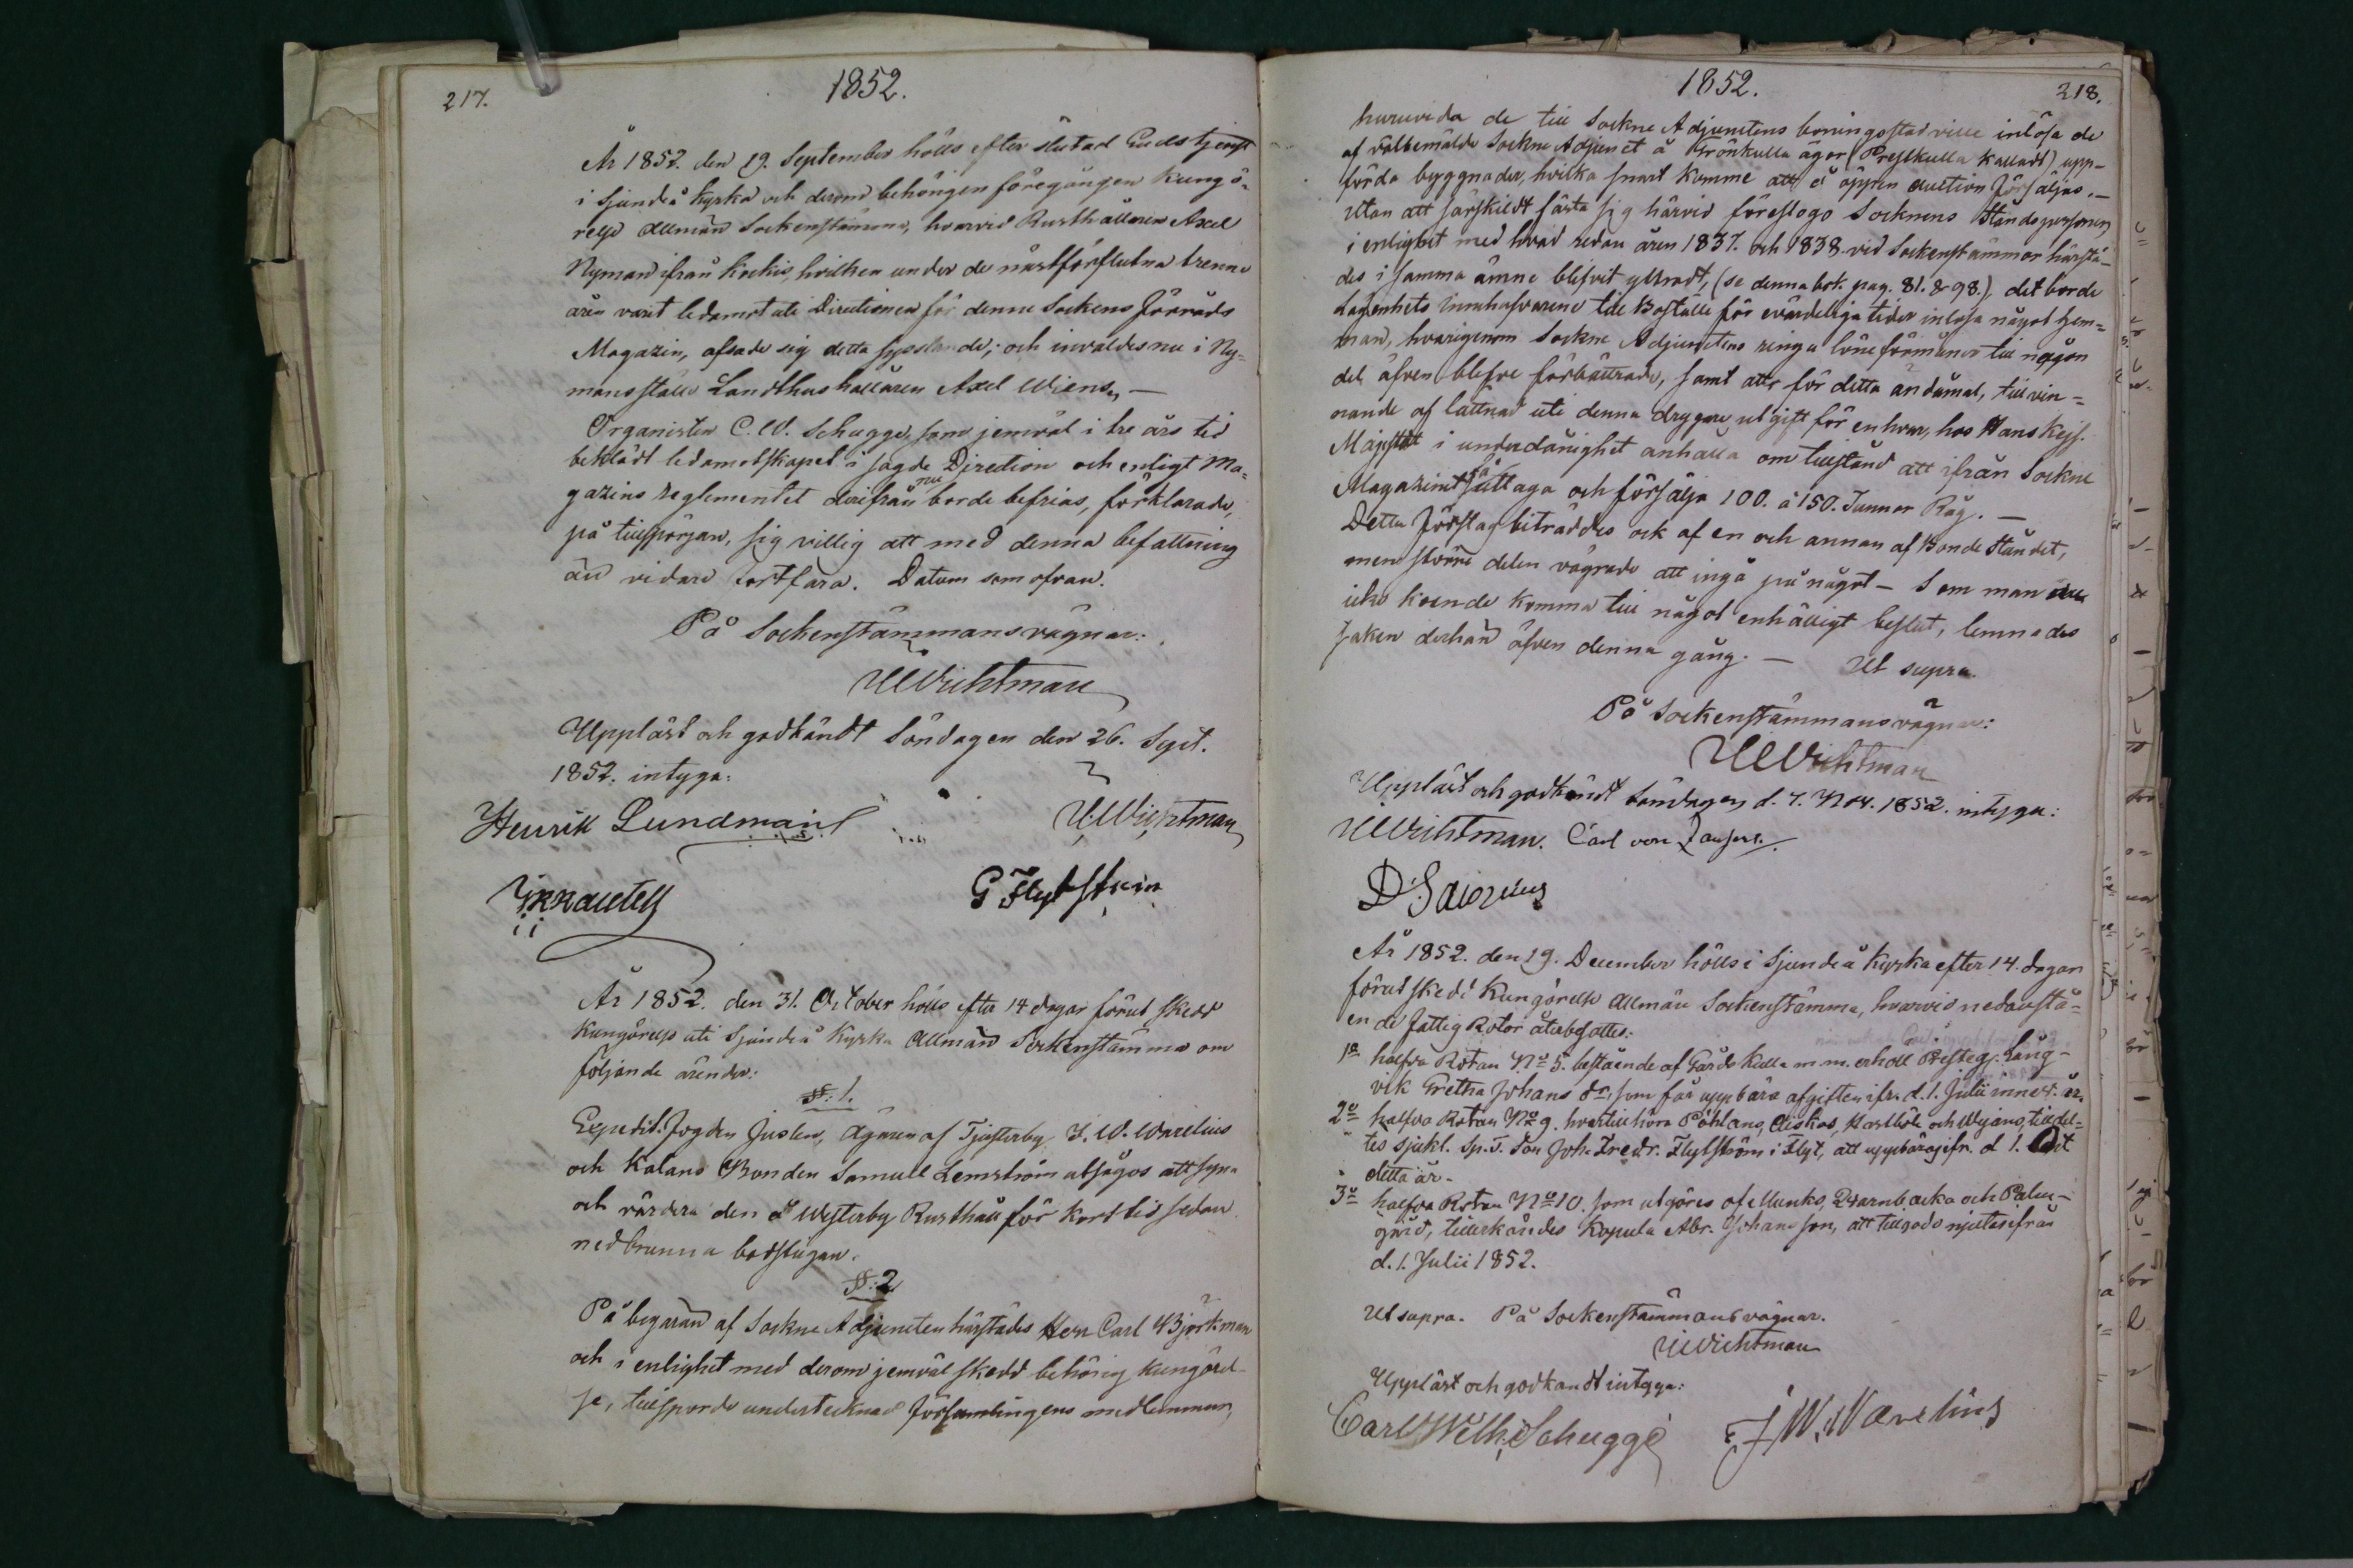 217.
1852.
År 1852. den 19. September hölls efter slutad Gudstjenst
i Sjundeå kyrka och derom behörigen föregången kungö-
relse allmän Sockenstämma, hvarvid Rusthållaren Axel
Nyman ifrån Kockis, hvilken under de nästförflutna trenne
åren varit ledamot uti Directionen för denne Sockens Förråds
Magazin, afsade sig detta sysslande; och invaldes nu i Ny-
mans ställe Landthushållaren Axel Wiens. —
Organisten C. W. Schugge, som jemväl i tre års tid
beklädt ledamotskapet i sagde Direction och enligt Ma-
gazins reglementet derifrån nu borde befrias, förklarade,
på tillspörjan, sig villig att med denna befattning
än vidare fortfara. Datum som ofvan.
På Sockenstämmans vägnar:
UWichtman
Uppläst och godkändt Söndagen den 26. Sept.
1852. intyga:
Henrik Lundman
UWichtman
G Flytström
År 1852. den 31. October hölls efter 14 dagar förut skedd
kungörelse uti Sjundeå Kyrka Allmän Sockenstämma om
följande ärender:
§: 1.
Expedit. Fogden Juslen, ägaren af Tjusterby J. W. Warelius
och Kalans Bonden Samuel Lemström utsågos att syna
och värdera den å Westerby Rusthåll för kort tid sedan
nedbrunna badstugan.
§: 2
På begäran af Sockne Adjuncten härstädes Herr Carl Björkman
och i enlighet med derom jemväl skedd behörig kungörel-
se, tillsporde undertecknad församlingens medlemmar,
1852.
218.
huruvida de till Sockne Adjunctens boningsstad ville inlösa de
af välbemälde Sockne Adjunct å Grönkulla äger (Prestkulla kalladt) upp-
förda byggnader, hvilka snart komme att å öppen auction försäljas. —
Utan att särskildt fästa sig härvid föreslogo Socknens Ståndspersoner
i enlighet med hvad redan åren 1837. och 1838. vid Sockenstämmor härstä-
des i samma ämne blifvit yttradt, (se denna bok. pag. 81. & 98.), det borde
lägenhets innehafvarene till Boställe för evärdeliga tider inlösa något hem-
man, hvarigenom Sockne Adjunctens ringa löneförmåner till någon
del äfven blefve förbättrade, samt att för detta ändamål, till vin-
nande af lättnad uti denna drygare utgift för enhvar, hos Hans Kejs.
Majestät i underdånighet anhålla om tillstånd att ifrån Sockne
Magazinet få uttaga och försälja 100. à 150. Tunnor Råg. —
Detta förslag biträddes ock af en och annan af Bonde Ståndet,
men större delen vägrade att ingå på något — Som man
icke kunde komma till något enhälligt beslut, lemnades
saken derhän äfven denna gång. — Ut supra.
På Sockenstämmans vägnar:
UWichtman
Uppläst och godkändt Söndagen d. 7. Nov. 1852. intyga:
UWichtman. Carl von
År 1852. den 19. December hölls i Sjundeå Kyrka efter 14. dagar
förut skedd Kungörelse allmän Sockenstämma, hvarvid nedanstå-
ende Fattig Rotor återbesattes:
1o halfva Rotan No 5. bestående af Gårds Kulla m.m. erhöll Presteg. Lång-
vik Gretha Johans dr, som får uppbära afgiften ifr. d. 1. Julii innev. år.
2o halfva Rotan No 9. hvartill höra Påhlans, Aiskos, Karlböle och Wejans, tilldel-
tes sjukl. Sp. T. Son Joh. Fredr. Flytström i Flyt, att uppbära ifr. d 1. Oct
detta år.
3o halfva Rotan No 10. som utgöres af Munks, Qvarnbacka och Palm-
gård, tillerkändes Kopula Abr. Johansson, att tillgodo njuta ifrån
d. 1. Julii 1852.
Ut supra. På Sockenstämmans vägnar.
UWichtman
Uppläst och godkändt intyga:
Carl Wilh. Schugge
J W. Warelius